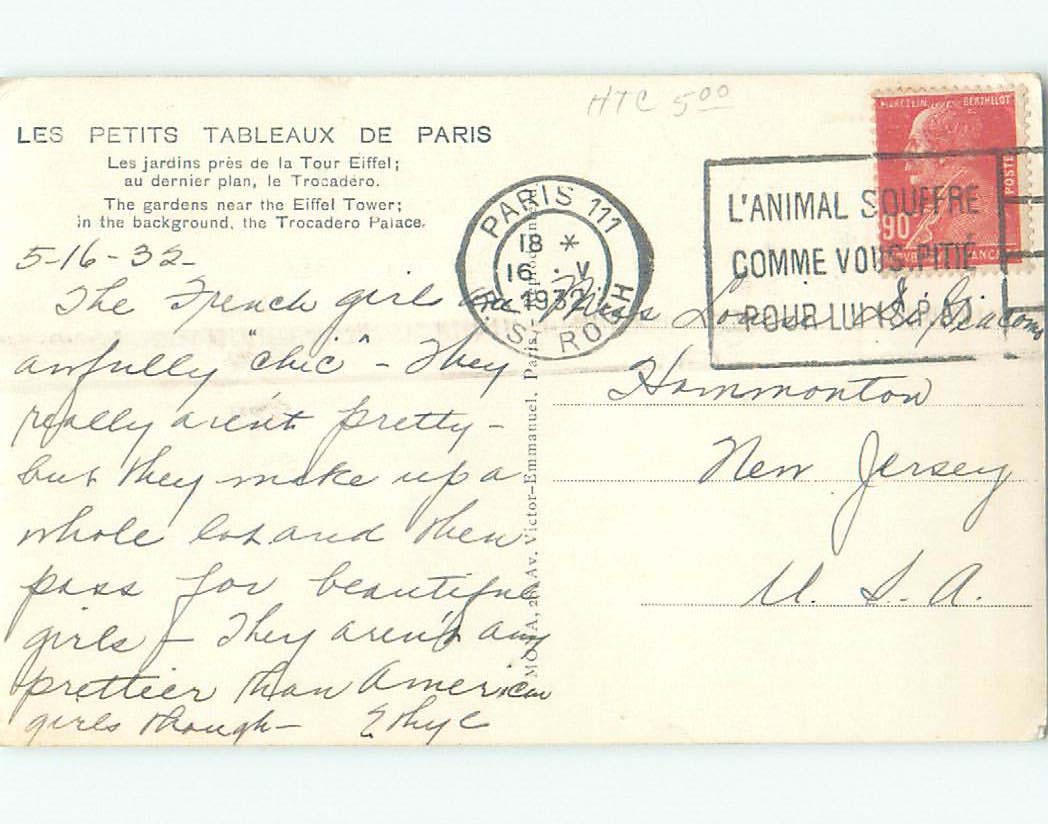 HTC 5.00
LES PETITS TABLEAUX DE PARIS
Les jardins près de la Tour Eiffel;
au dernier plan, le Trocadéro.
The gardens near the Eiffel Tower;
in the background, the Trocadero Palace.
5-16-32-
The French girls are
awfully "chic" - They
really aren't pretty -
but they make up a
whole lot and then
pass for beautiful
girls - They aren't any
prettier than American
girls though - Ethyl
MONA, Av. Victor-Emmanuel, Paris
PARIS 111
18 *
16 . V
1932
R. ST ROCH
MARCELIN BERTHELOT
POSTES
90
L'ANIMAL SOUFFRE
COMME VOUS. PITIÉ
POUR LUI (S.P.A)
Miss
Hammonton
New Jersey
U. S. A.